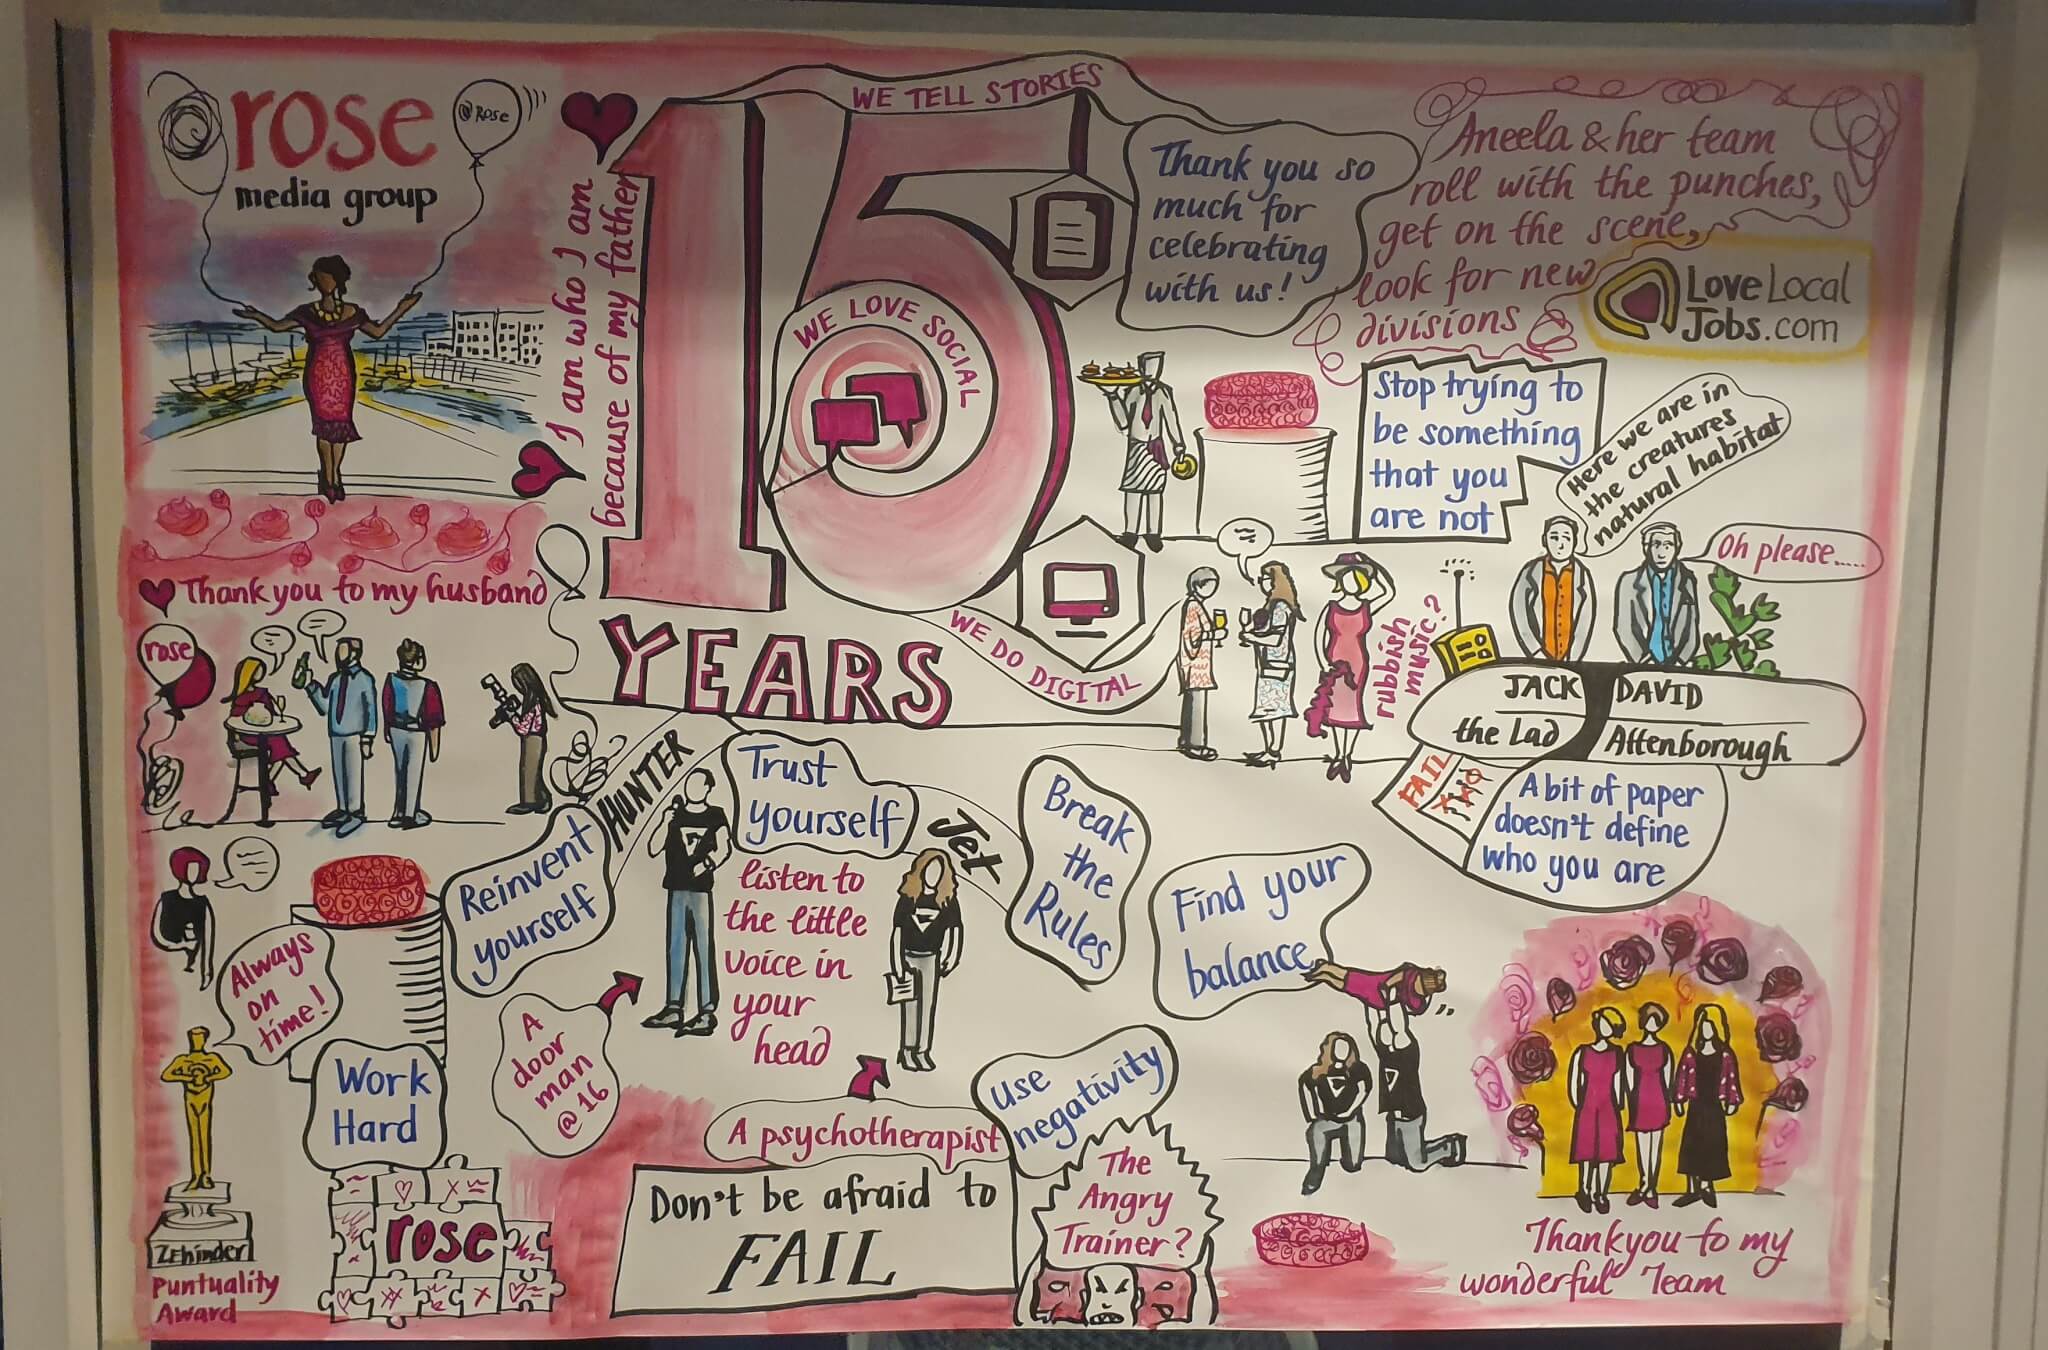 rose
media group
@ROSE
I am who I am
because of my father
WE TELL STORIES
15
WE LOVE SOCIAL
WE DO DIGITAL
YEARS
Thank you so
much for
celebrating
with us!
Aneela & her team
roll with the punches,
get on the scene,
look for new
divisions
LOVE LOCAL
JOBS.com
Stop trying to
be something
that you
are not
Here we are in
the creatures
natural habitat
Oh please.....
rubbish
music?
JACK
the Lad
DAVID
Attenborough
FAIL
A bit of paper
doesn't define
who you are
Thank you to my husband
rose
Always
on
time!
ZEhinder
Puntuality
Award
Work
Hard
rose
Reinvent
yourself
HUNTER
Trust
yourself
listen to
the little
voice in
your
head
A
door
man
@ 16
Jet
A psychotherapist
Break
the
Rules
Find your
balance
Use
negativity
Don't be afraid to
FAIL
The
Angry
Trainer?
Thankyou to my
wonderful Team